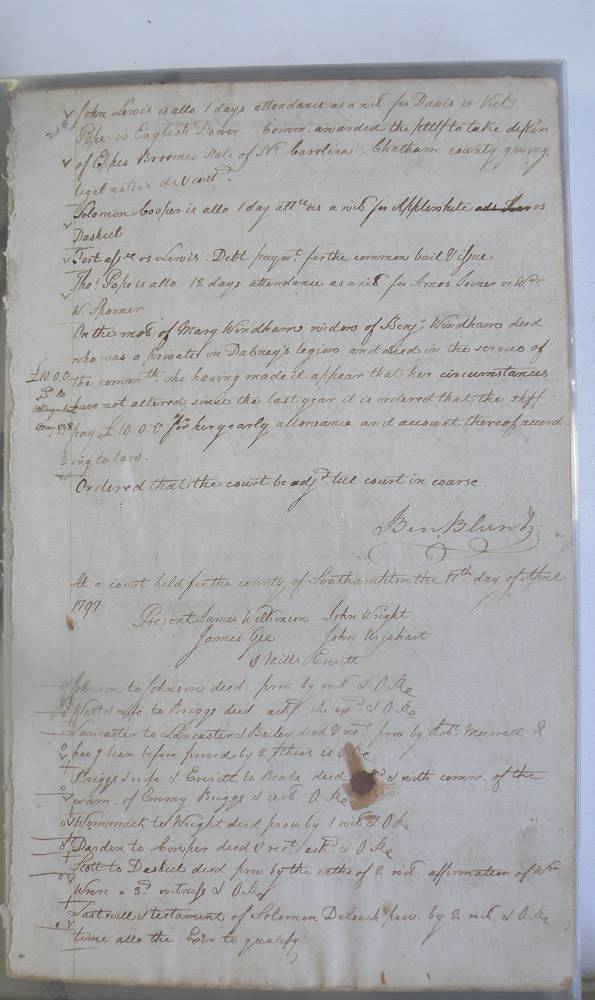 John Lewis is allo. 1 days attendance as a witt for Davis vs Vick
Pope vs English Dower. Comm. awarded the pltff to take depon
of Eppes Broomes State of No. Carolina Chatham county giving
legal notice &c
Solomon Cooper is allo 1 day attce as a witt for Applewhite vs
Daskiel
Fort assee vs Lewis. Debt paymt. for the common bail & issue
Thos. Pope is allo. 12 days attendance as a witt for Amos Joiner vs Wm.
W. Spooner
On the mot. of Mary Windham widow of Benj. Windham deed
who was a private in Dabney's legion and died in the service of
the commth. she having made it appear that her circumstances
have not altered since the last year it is ordered that the shff
pay £10.0.0 for her yearly allowance and account thereof accord
ing to law.
£10.0.0
May 1798
Ordered that the court be adjd. till court in course.
Ben. Blunt
At a court held for the county of Southampton the 17th day of April
1797
Present James Wilkinson John Wright
James Gee John Urquhart
& Mills Everitt
Johnson to Johnson deed. prov. by witt & O Re
West & wife to Briggs deed. ackd. & O Re
Lancaster to Lancaster & Bailey deed & rect. prov. by Robt. Murrell &
havg been before proved by 2 others is O Re
Briggs & wife & Everitt to Beale deed & with comm. of the
exam. of Emmy Briggs & cert. O Re
Wommack to Wright deed prov. by 1 witt & O Re
Darden to Cowper deed & rect. ackd. & O Re
Scott to Daskiel deed prov. by the oaths of 2 witt. affirmation of Wm
Wren a 3d. witness & O Re
Last will & testament of Solomon Deloach prov. by 2 witt & O Re
time allo. the Exr to qualify